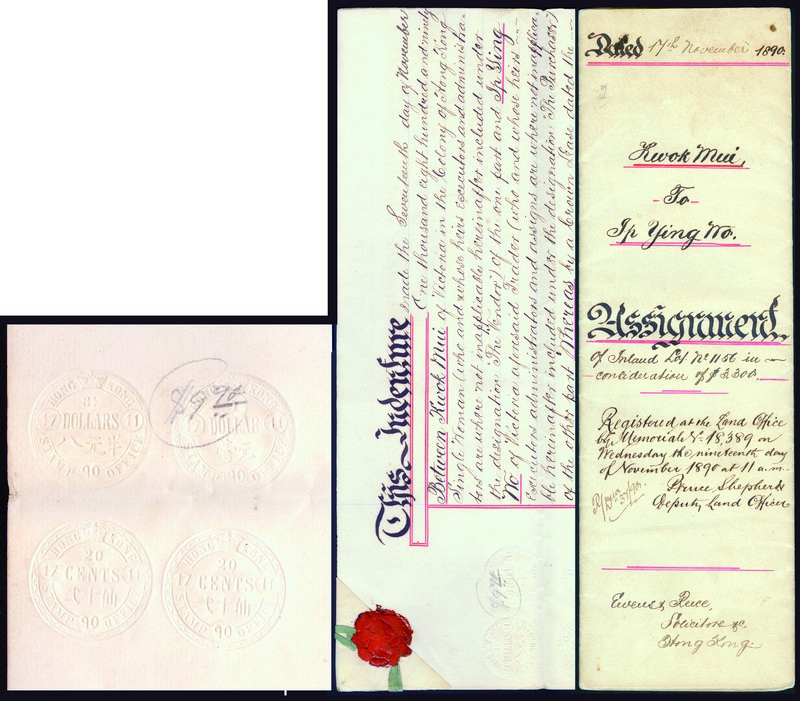 HONG KONG
8½
17 DOLLARS 11
八元半
STAMP 90 OFFICE
HONG KONG
17 DOLLAR 11
壹元
STAMP 90 OFFICE
$9 40
HONG KONG
20
17 CENTS 11
弍十仙
STAMP 90 OFFICE
HONG KONG
20
17 CENTS 11
弍十仙
STAMP 90 OFFICE
This Indenture made the Seventeenth day of November
One thousand eight hundred and ninety
Between Kwok Mui of Victoria in the Colony of Hong Kong
Single Woman (who and whose heirs executors and administra-
tors are where not inapplicable hereinafter included under
the designation "The Vendor") of the one part and Ip Ying
Wo of Victoria aforesaid Trader (who and whose heirs
executors administrators and assigns are where not inapplica-
ble hereinafter included under the designation "The Purchaser")
of the other part Whereas by a Crown Lease dated the
$9 40
Dated 17th November 1890.
Kwok Mui,
To
Ip Ying Wo.
Assignment
of Inland Lot No. 1156 in
consideration of $3,300.
Registered at the Land Office
by Memorial No. 18,389 on
Wednesday the nineteenth day
of November 1890 at 11 a.m.
Bruce Shepherd
Deputy Land Officer
Ewens & Reece,
Solicitors &c.
Hong Kong.